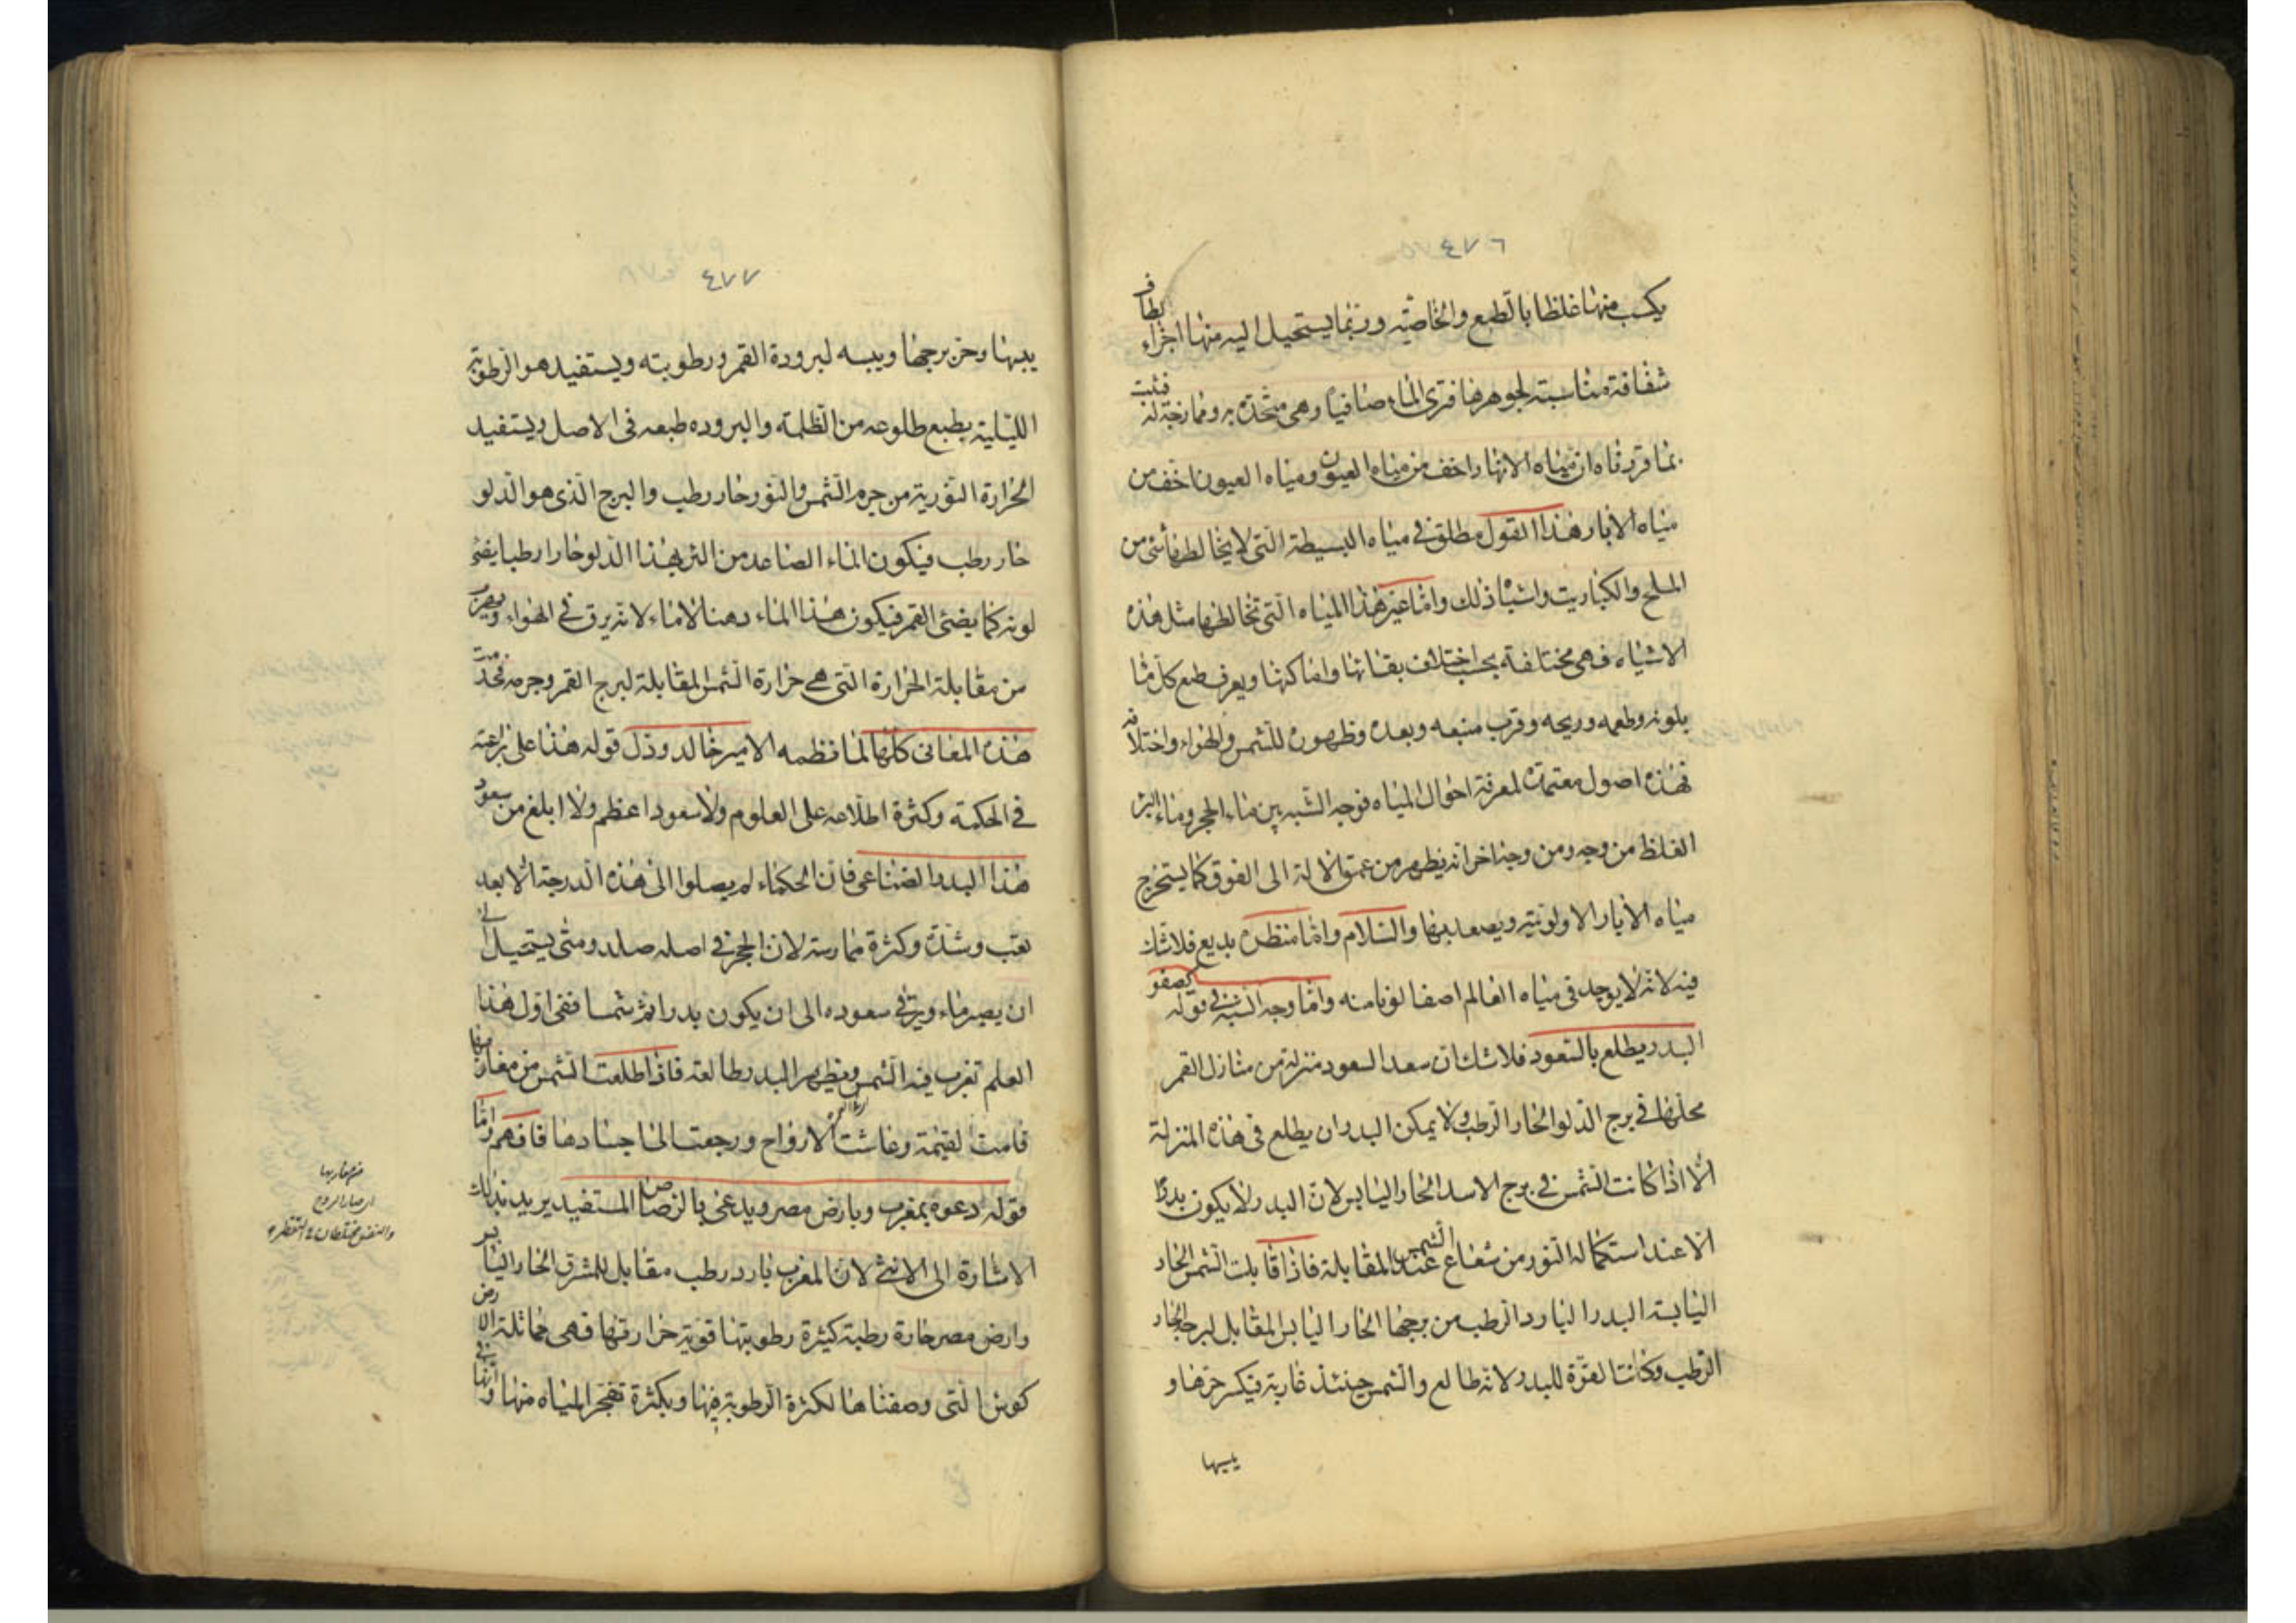 ٤٧٦
يكسب منها غلظا بالطبع والخاصية وربما يستحيل اليه منها اجزاء لطاف
شفافة مناسبة لجوهرها فترى الماء صافيا وهي متحدة به وممازجة له فثبت
بما قررناه ان مياه الانهار اخف من مياه العيون ومياه العيون اخف من
مياه الابار هذا القول مطلق في مياه البسيطة التي لا يخالطها شئ من
الملح والكباريت واشباه ذلك واما غير هذا المياه التي تخالطها مثل هذه
الاشياء فهي مختلفة بحسب اختلاف بقاعها واماكنها ويعرف طبع كل ما
بلونه وطعمه وريحه وقرب منبعه وبعده وظهوره للشمس والهواء واختلافه
فهذه اصول معتمدة لمعرفة احوال المياه فوجه الشبه بين ماء الحجر وماء البئر
الغلظ من وجه ومن وجه اخر انه يظهر من عمق الالة الى الفوق كما يستخرج
مياه الابار الاولونية ويصعد بها والسلام واما منظره بديع فلا شك
فيه لانه لا يوجد في مياه العالم اصفا لونا منه واما وجه الشبه في قوله كصفو
البدر يطلع بالسعود فلا شك ان سعد السعود منزلة من منازل القمر
محلها في برج الدلو الحار الرطب ولا يمكن البدر ان يطلع في هذه المنزلة
الا اذا كانت الشمس في برج الاسد الحار اليابس لان البدر لا يكون بدرا
الا عند استكماله النور من شعاع الشمس عند المقابلة فاذا قابلت الشمس الحار
اليابسة البدر البارد الرطب من برجها الحار اليابس المقابل لبرجه الحار
الرطب وكانت القوة للبدر لانه طالع والشمس حينئذ غاربة فيكسر حرها و
يبسها
٤٧٧
يبسها وحر برجها ويبسه لبرودة القمر ورطوبته ويستفيد هو الرطوبة
الليلية بطبع طلوعه من الظلمة والبروده طبعه في الاصل ويستفيد
الحرارة النورية من جرم الشمس والنور حار رطب والبرج الذي هو الدلو
حار رطب فيكون الماء الصاعد من البئر بهذا الدلو حارا رطبا يضئ
لونه كما يضئ القمر فيكون هذا الماء دهنا لا ماء لانه يرق في الهواء
من مقابلة الحرارة التي هي حرارة الشمس المقابلة لبرج القمر وجرمه فخدمت
هذه المعاني كلها لما نظمه الامير خالد ودل قوله هذا على براعته
في الحكمة وكثرة اطلاعه على العلوم ولا سعود اعظم ولا ابلغ من سعود
هذا البدر الصناعي فان الحكماء لم يصلوا الى هذه الدرجة الا بعد
تعب وشدة وكثرة ممارسة لان الحجر في اصله صلد ومتى يستحيل الى
ان يصير ماء ويرقى سعوده الى ان يكون بدرا ثم شمسا ففي اول هذا
العلم تغرب فيه الشمس ويظهر البدر طالعه فاذا طلعت الشمس من مغاربها
قامت القيمة وعاشت الارواح ورجعت الى اجسادها فافهم واما
قوله دعوه بمغرب وبارض مصر ويدعى بالرصاص المستفيد يريد بذلك
الاشارة الى الانثى لان المغرب بارد رطب مقابل للمشرق الحار اليابس
وارض مصر حارة رطبة كثيرة رطوبتها قوية حرارتها فهي مماثلة الارض
التي وصفناها لكثرة الرطوبة فيها وبكثرة تفجر المياه منها وانها في
من مغاربها
اى صار الروح
والنفس مختلطان